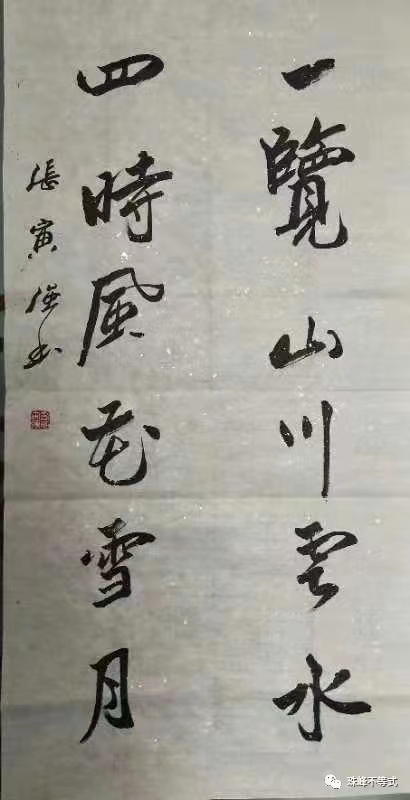 一覽山川雲水
四時風花雪月
張寅強书
珠峰不等式